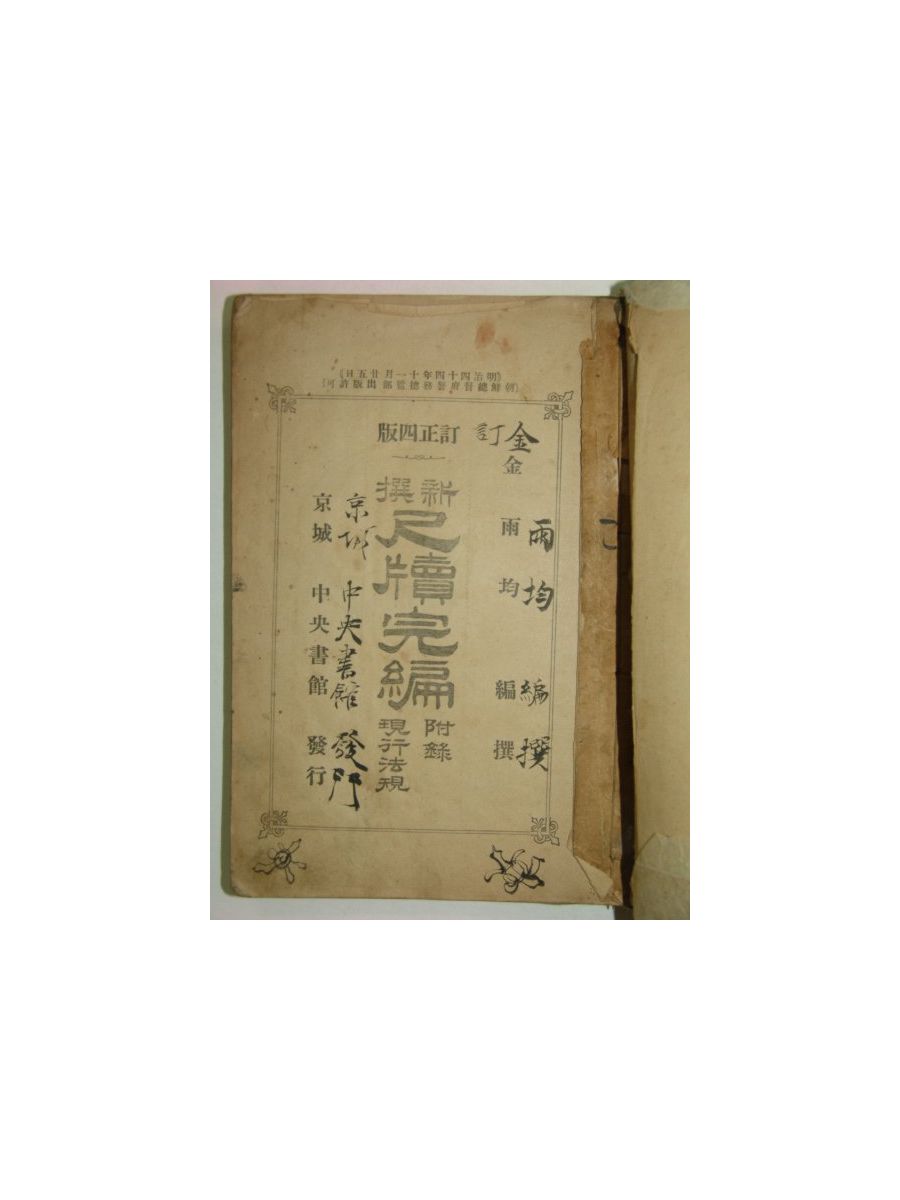 明治四十四年十一月廿五日
朝鮮總督府警務摠監部出版許可
訂正四版
金雨均編撰
金雨均編撰
訂
新撰
尺牘完編
附錄
現行法規
京城中央書館發行
京城中央書館發門